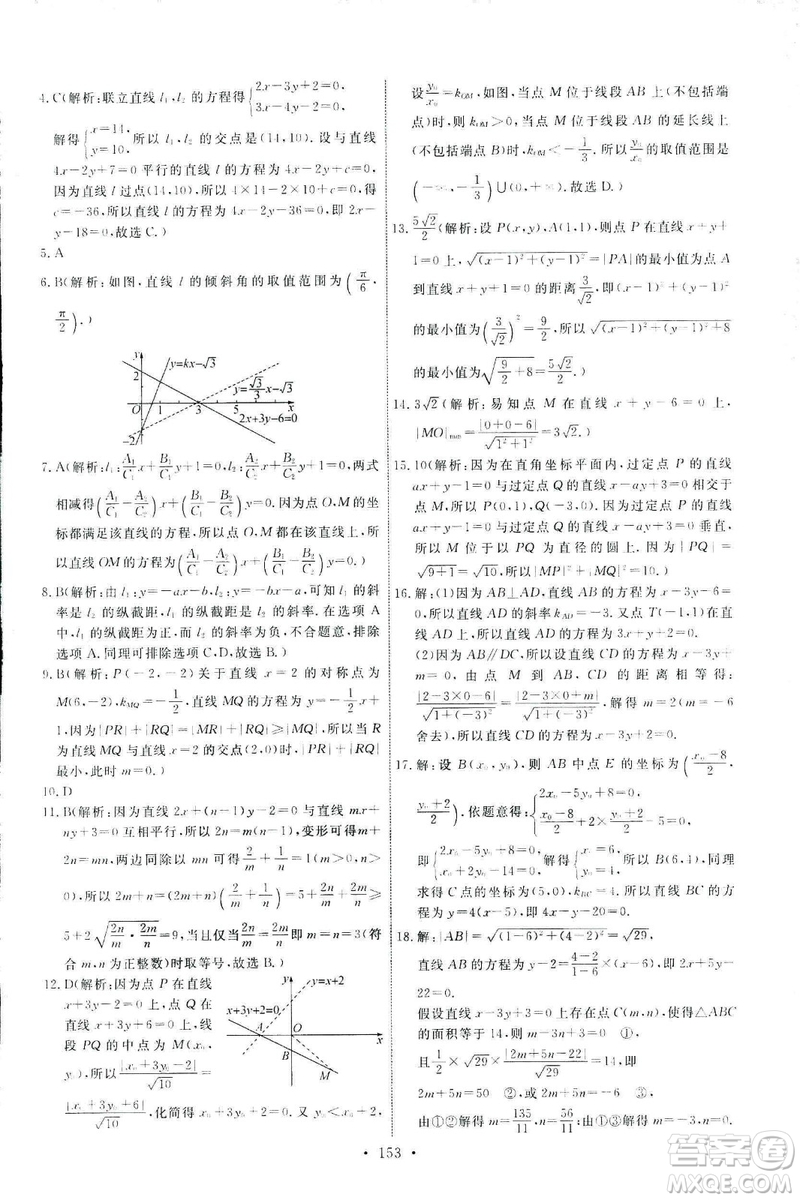 4. C(解析:联立直线 l₁,l₂ 的方程得{2x-3y+2=0, 3x-4y-2=0.
解得{x=14, y=10. 所以 l₁,l₂ 的交点是(14,10). 设与直线
4x-2y+7=0 平行的直线 l 的方程为 4x-2y+c=0,
因为直线 l 过点(14,10),所以 4×14-2×10+c=0,得
c=-36,所以直线 l 的方程为 4x-2y-36=0,即 2x
-y-18=0.故选 C.)
5. A
6. B(解析:如图,直线 l 的倾斜角的取值范围为(π/6,
π/2).)
y
2
y=kx-√3
O
1
3
5
x
-2
2x+3y-6=0
7. A(解析:l₁:A₁/C₁x+B₁/C₁y+1=0,l₂:A₂/C₂x+B₂/C₂y+1=0,两式
相减得(A₁/C₁-A₂/C₂)x+(B₁/C₁-B₂/C₂)y=0,点 O,M 的坐
标都满足该直线的方程,所以点 O,M 都在该直线上,所
以直线 OM 的方程为(A₁/C₁-A₂/C₂)x+(B₁/C₁-B₂/C₂)y=0.)
8. B(解析:由 l₁:y=-ax-b,l₂:y=bx-a,可知 l₁ 的斜
率是 l₂ 的纵截距,l₁ 的纵截距是 l₂ 的斜率.在选项 A
中,l₁ 的纵截距大于零,l₂ 的斜率小于零,不合题意,排除
选项 A.同理可排除 C,D,故选 B.)
9. B(解析:P(-2,-2)关于直线 x=2 的对称点为
M(6,-2),kMQ=-1/2,直线 MQ 的方程为 y=-1/2x+
1,因为|PR|+|RQ|=|MR|+|RQ|≥|MQ|,所以当 R
为直线 MQ 与直线 x=2 的交点(2,0)时,|PR|+|RQ|
最小,此时 m=0.)
10. D
11. B(解析:因为直线 2x+(n-1)y-2=0 与直线 mx+
ny+3=0 互相平行,所以 2n=m(n-1),变形可得 m+
2n=mn,两边同除以 mn 可得 2/m+1/n=1.因为 m>0,n>
0,所以 2m+n=(2m+n)(2/m+1/n)=5+2n/m+2m/n≥
5+2√(2n/m·2m/n)=9,当且仅当2n/m=2m/n,即 m=n=3(符
合 m,n 为正整数)时取等号,故选 B.)
12. D(解析:因为点 P 在直线
x+3y-2=0 上,点 Q 在直
线 x+3y+6=0 上,所以线
段 PQ 的中点为 M(x₀,
y₀),所以|x₀+3y₀-2|/√10=
|x₀+3y₀+6|/√10,化简得 x₀+3y₀+2=0.又 y₀<x₀+2,
y
y=x+2
x+3y+2=0
A
O
x
B
M
设y₀/x₀=kOM,如图,当点 M 位于线段 AB 上(不包括端
点)时,kOM>0,当点 M 位于射线 AB 的延长线上
(不包括端点 B)时,-1/3<kOM<0.所以y₀/x₀的取值范围是
(-∞,-1/3)∪(0,+∞).故选 D.)
13. 5√2/2(解析:设 P(x,y),A(1,1),则点 P 在直线 x+y+1
=0 上,√((x-1)²+(y-1)²)=|PA|的最小值为点 A
到直线 x+y+1=0 的距离3/√2,即(x-1)²+(y-1)²
的最小值为(3/√2)²=9/2,所以√((x-1)²+(y-1)²+8)
的最小值为√(9/2+8)=5√2/2.)
14. 3√2(解析:易知点 M 在直线 x+y-6=0 上,所以
|MO|min=|0+0-6|/√(1²+1²)=3√2.)
15. 10(解析:因为在直角坐标平面内,过定点 P 的直线
ax+y-1=0 与过定点 Q 的直线 x-ay+3=0 相交于
点 M,所以 P(0,1),Q(-3,0).因为过定点 P 的直线
ax+y-1=0 与过定点 Q 的直线 x-ay+3=0 垂直,
所以 M 位于以 PQ 为直径的圆上.因为|PQ|=
√(9+1)=√10,所以|MP|²+|MQ|²=10.)
16. 解:(1)因为 AB⊥AD,直线 AB 的方程为 x-3y-6=
0,所以直线 AD 的斜率 kAD=-3.又点 T(-1,1)在直
线 AD 上,所以直线 AD 的方程为 3x+y+2=0.
(2)因为 AB∥DC,所以可设直线 CD 的方程为 x-3y
+m=0.由点 M 到 AB,CD 的距离相等得
|2-3×0-6|/√(1+(-3)²)=|2-3×0+m|/√(1+(-3)²),解得 m=2(m=-6
舍去),所以直线 CD 的方程为 x-3y+2=0.
17. 解:设 B(x₀,y₀),则 AB 中点 E 的坐标为((x₀-8)/2,
(y₀+2)/2),依题意得:{2x₀-5y₀+8=0, (x₀-8)/2+2×(y₀+2)/2-5=0,
即{2x₀-5y₀+8=0, x₀+2y₀-14=0,解得{x₀=6, y₀=4.所以 B(6,4),同理
求得 C 点的坐标为(5,0),kBC=4.故所求直线 BC 的方
程为 y=4(x-5),即 4x-y-20=0.
18. 解:|AB|=√((1-6)²+(4-2)²)=√29,
直线 AB 的方程为 y-2=(4-2)/(1-6)(x-6),即 2x+5y-
22=0.
假设在直线上存在点 C(m,n),使得△ABC
的面积等于 14,则 m-3n+3=0 ①,
且1/2×√29×|2m+5n-22|/√29=14,所以 2m+5n+6=0 或
2m+5n=50 ② ③.
由①②解得 m=135/11,n=56/11;
153
答案圈
MXQE.COM